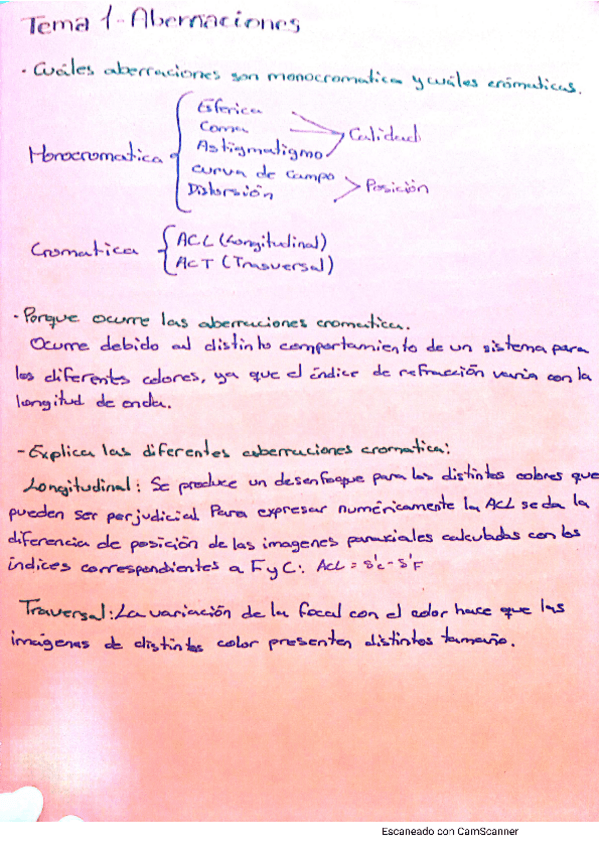 Tema 1 - Aberraciones
· Cuáles aberraciones son monocromatica y cuáles crómaticas.
Esferica
Coma
Calidad
Astigmatigmo
Monocromatica
curva de campo
Posición
Distorsión
Cromatica
ACL (Longitudinal)
ACT (Trasversal)
· Porque ocurre las aberraciones cromatica.
Ocurre debido al distinto comportamiento de un sistema para
los diferentes colores, ya que el índice de refracción varia con la
longitud de onda.
- Explica las diferentes aberraciones cromatica:
Longitudinal: Se produce un desenfoque para los distintos colores que
pueden ser perjudicial. Para expresar numéricamente la ACL se da la
diferencia de posición de las imagenes paraxiales calculadas con los
índices correspondientes a F y C: ACL = s'c - s'F
Traversal: La variación de la focal con el color hace que las
imágenes de distintos color presenten distintos tamaño.
Escaneado con CamScanner